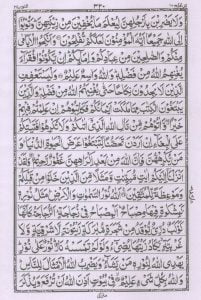 ٣٣٠
وَلَا يَضْرِبْنَ بِاَرْجُلِهِنَّ لِيُعْلَمَ مَا يُخْفِيْنَ مِنْ زِيْنَتِهِنَّ وَتُوْبُوْٓا
اِلَى اللّٰهِ جَمِيْعًا اَيُّهَ الْمُؤْمِنُوْنَ لَعَلَّكُمْ تُفْلِحُوْنَ وَاَنْكِحُوا الْاَيَامٰى
مِنْكُمْ وَالصّٰلِحِيْنَ مِنْ عِبَادِكُمْ وَاِمَآئِكُمْ اِنْ يَّكُوْنُوْا فُقَرَآءَ
يُغْنِهِمُ اللّٰهُ مِنْ فَضْلِهٖ وَاللّٰهُ وَاسِعٌ عَلِيْمٌ وَلْيَسْتَعْفِفِ
الَّذِيْنَ لَا يَجِدُوْنَ نِكَاحًا حَتّٰى يُغْنِيَهُمُ اللّٰهُ مِنْ فَضْلِهٖ وَالَّذِيْنَ
يَبْتَغُوْنَ الْكِتٰبَ مِمَّا مَلَكَتْ اَيْمَانُكُمْ فَكَاتِبُوْهُمْ اِنْ عَلِمْتُمْ فِيْهِمْ
خَيْرًا وَّاٰتُوْهُمْ مِّنْ مَّالِ اللّٰهِ الَّذِيْٓ اٰتٰىكُمْ وَلَا تُكْرِهُوْا فَتَيٰتِكُمْ
عَلَى الْبِغَآءِ اِنْ اَرَدْنَ تَحَصُّنًا لِّتَبْتَغُوْا عَرَضَ الْحَيٰوةِ
الدُّنْيَا وَمَنْ يُّكْرِهْهُّنَّ فَاِنَّ اللّٰهَ مِنْ بَعْدِ اِكْرَاهِهِنَّ غَفُوْرٌ رَّحِيْمٌ وَلَقَدْ
اَنْزَلْنَآ اِلَيْكُمْ اٰيٰتٍ مُّبَيِّنٰتٍ وَّمَثَلًا مِّنَ الَّذِيْنَ خَلَوْا مِنْ قَبْلِكُمْ
وَمَوْعِظَةً لِّلْمُتَّقِيْنَ اَللّٰهُ نُوْرُ السَّمٰوٰتِ وَالْاَرْضِ مَثَلُ نُوْرِهٖ
كَمِشْكٰوةٍ فِيْهَا مِصْبَاحٌ اَلْمِصْبَاحُ فِيْ زُجَاجَةٍ اَلزُّجَاجَةُ كَاَنَّهَا
كَوْكَبٌ دُرِّيٌّ يُّوْقَدُ مِنْ شَجَرَةٍ مُّبٰرَكَةٍ زَيْتُوْنَةٍ لَّا شَرْقِيَّةٍ وَّلَا
غَرْبِيَّةٍ يَّكَادُ زَيْتُهَا يُضِيْٓءُ وَلَوْ لَمْ تَمْسَسْهُ نَارٌ نُوْرٌ عَلٰى نُوْرٍ
يَهْدِي اللّٰهُ لِنُوْرِهٖ مَنْ يَّشَآءُ وَيَضْرِبُ اللّٰهُ الْاَمْثَالَ لِلنَّاسِ
وَاللّٰهُ بِكُلِّ شَيْءٍ عَلِيْمٌ فِيْ بُيُوْتٍ اَذِنَ اللّٰهُ اَنْ تُرْفَعَ وَيُذْكَرَ